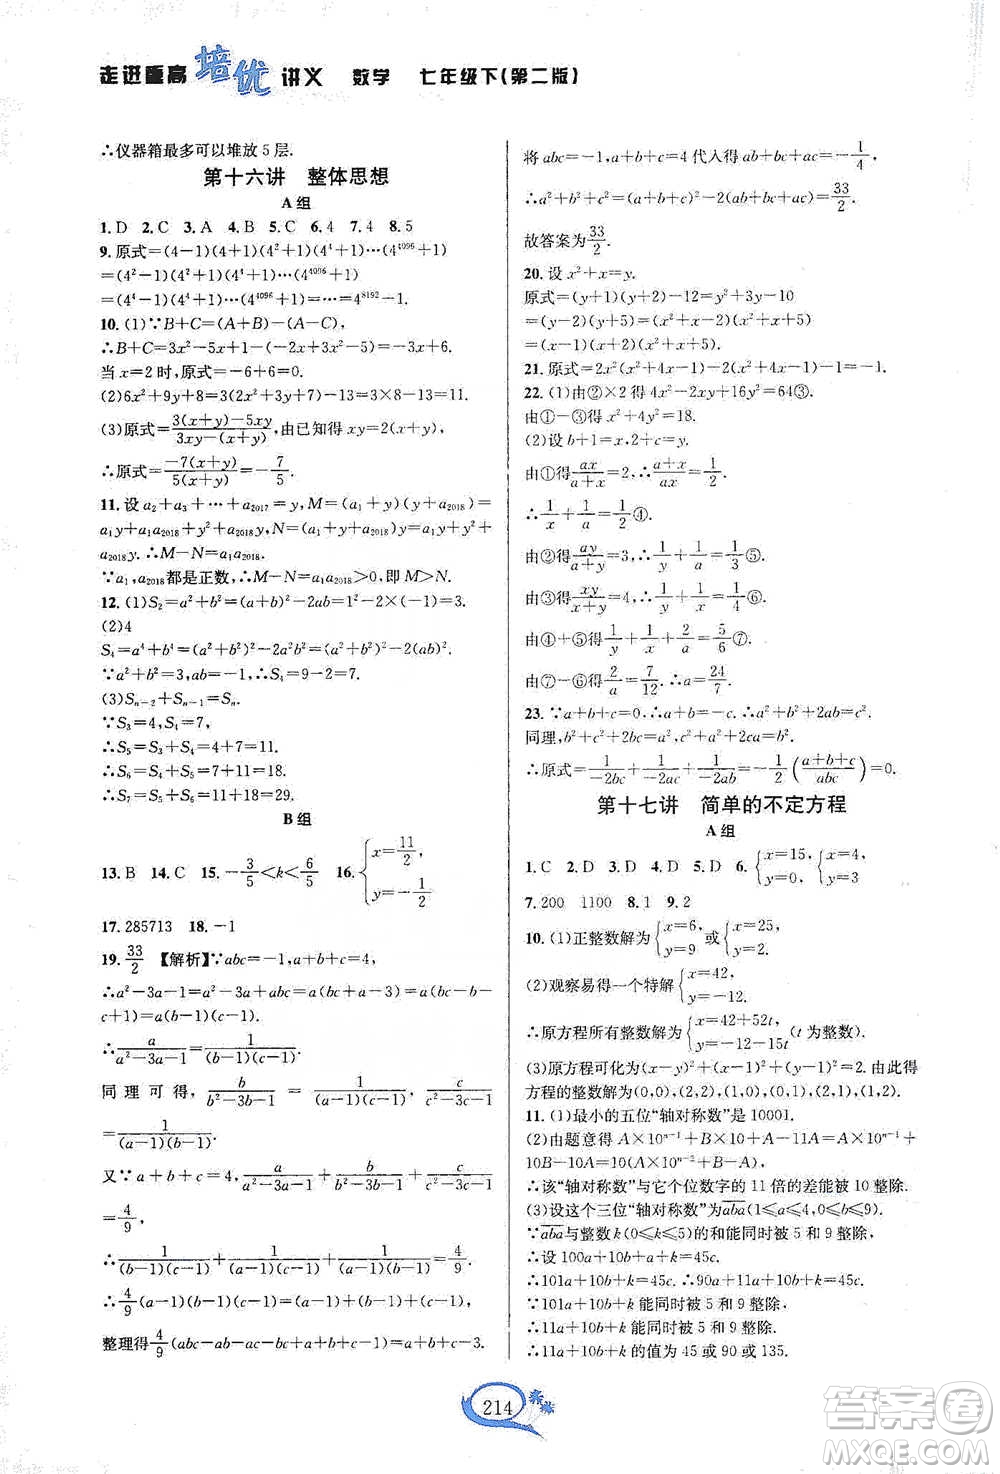 走进重高 培优 讲义 数学 七年级下(第二版)
∴仪器箱最多可以堆放 5 层.
第十六讲 整体思想
A 组
1. D 2. C 3. A 4. B 5. C 6. 4 7. 4 8. 5
9. 原式=(4-1)(4+1)(4²+1)(4⁴+1)…(4⁴⁰⁹⁶+1)
=(4²-1)(4²+1)(4⁴+1)…(4⁴⁰⁹⁶+1)
=(4⁴-1)(4⁴+1)…(4⁴⁰⁹⁶+1)=4⁸¹⁹²-1.
10. (1)∵B+C=(A+B)-(A-C),
∴B+C=3x²-5x+1-(-2x+3x²-5).
当 x=2 时,原式=-6+6=0.
(2)6x²+9y+8=3(2x²+3y+7)-13=3×8-13=11.
(3)原式=3(x+y)-5xy/3xy-(x+y),由已知得 xy=2(x+y),
∴原式=-7(x+y)/5(x+y)=-7/5.
11. 设 a₂+a₃+…+a₂₀₁₇=y,M=(a₁+y)(y+a₂₀₁₈)=
a₁y+a₁a₂₀₁₈+y²+a₂₀₁₈y,N=(a₁+y+a₂₀₁₈)y=a₁y+y²+
a₂₀₁₈y. ∴M-N=a₁a₂₀₁₈.
∵a₁,a₂₀₁₈都是正数,∴M-N=a₁a₂₀₁₈>0,即 M>N.
12. (1)S₂=a²+b²=(a+b)²-2ab=1²-2×(-1)=3.
(2)4
S₄=a⁴+b⁴=(a²+b²)²-2a²b²=(a²+b²)²-2(ab)².
∵a²+b²=3,ab=-1,∴S₄=9-2=7.
(3)Sₙ₋₂+Sₙ₋₁=Sₙ.
∵S₃=4,S₄=7,
∴S₅=S₃+S₄=4+7=11.
∴S₆=S₄+S₅=7+11=18.
∴S₇=S₅+S₆=11+18=29.
B 组
13. B 14. C 15. -3/5<k<6/5 16. {x=11/2, y=-1/2
17. 285713 18. -1
19. 33/2 【解析】∵abc=-1,a+b+c=4,
∴a²-3a-1=a²-3a+abc=a(bc+a-3)=
a(bc-b-c+1)=a(b-1)(c-1).
∴a/a²-3a-1=1/(b-1)(c-1).
同理可得,b/b²-3b-1=1/(a-1)(c-1),c/c²-3c-1=
1/(a-1)(b-1).
又∵a+b+c=4,a/a²-3a-1+b/b²-3b-1+c/c²-3c-1
=4/9,
∴1/(b-1)(c-1)+1/(a-1)(c-1)+1/(a-1)(b-1)=4/9.
∴4/9(a-1)(b-1)(c-1)=(a-1)+(b-1)+(c-1).
整理得4/9(abc-ab-ac-bc+a+b+c-1)=a+b+c-3.
将 abc=-1,a+b+c=4 代入得 ab+bc+ac=-1/4,
∴a²+b²+c²=(a+b+c)²-2(ab+bc+ac)=33/2.
故答案为33/2.
20. 设 x²+x=y.
原式=(y+1)(y+2)-12=y²+3y-10
=(y-2)(y+5)=(x²+x-2)(x²+x+5)
=(x-1)(x+2)(x²+x+5).
21. 原式=2x²(x²+4x-1)-2(x²+4x-1)-1=-1.
22. (1)由②×2 得 4x²-2xy+16y²=64③.
由①-③得 x²+4y²=18.
(2)设 b+1=x,2+c=y.
由①得ax/a+x=2,∴a+x/ax=1/2.
∴1/x+1/a=1/2④.
由②得ay/a+y=3,∴1/y+1/a=1/3⑤.
由③得xy/x+y=4,∴1/y+1/x=1/4⑥.
由④+⑤得1/x+1/y+2/a=5/6⑦.
由⑦-⑥得2/a=7/12. ∴a=24/7.
23. ∵a+b+c=0,∴a+b=-c. ∴a²+b²+2ab=c².
同理,b²+c²+2bc=a²,c²+a²+2ca=b².
∴原式=1/-2bc+1/-2ca+1/-2ab=-1/2(a+b+c/abc)=0.
第十七讲 简单的不定方程
A 组
1. C 2. D 3. D 4. D 5. D 6. {x=15, y=0, {x=4, y=3
7. 200 1100 8. 1 9. 2
10. (1)正整数解为{x=6, y=9 或{x=25, y=2.
(2)观察易得一个特解{x=42, y=-12.
∴原方程所有整数解为{x=42+52t, y=-12-15t (t 为整数).
(3)原方程可化为(x-y)²+(x-1)²+(y-1)²=2. 可得
方程的整数解为(0,0),(2,2),(1,0),(0,1),(2,1),(1,2).
11. (1)最小的五位“轴对称数”是 10001.
(2)由题意得 A×10ⁿ⁻¹+B×10+A-11A=A×10ⁿ⁻¹+
10B-10A=10(A×10ⁿ⁻²+B-A).
∴该“轴对称数”与它个位数字的 11 倍的差能被 10 整除.
(3)设这个三位“轴对称数”为aba(1≤a≤4,0≤b≤9).
∵aba与整数 k(0≤k≤5)的和能同时被 5 和 9 整除,
∴设 100a+10b+a+k=45c.
∴101a+10b+k=45c. ∴90a+11a+10b+k=45c.
∵101a+10b+k 能同时被 5 和 9 整除,
∴11a+10b+k 能同时被 5 和 9 整除.
∴11a+10b+k 的值为 45 或 90 或 135.
214
答案圈
MXQE.COM